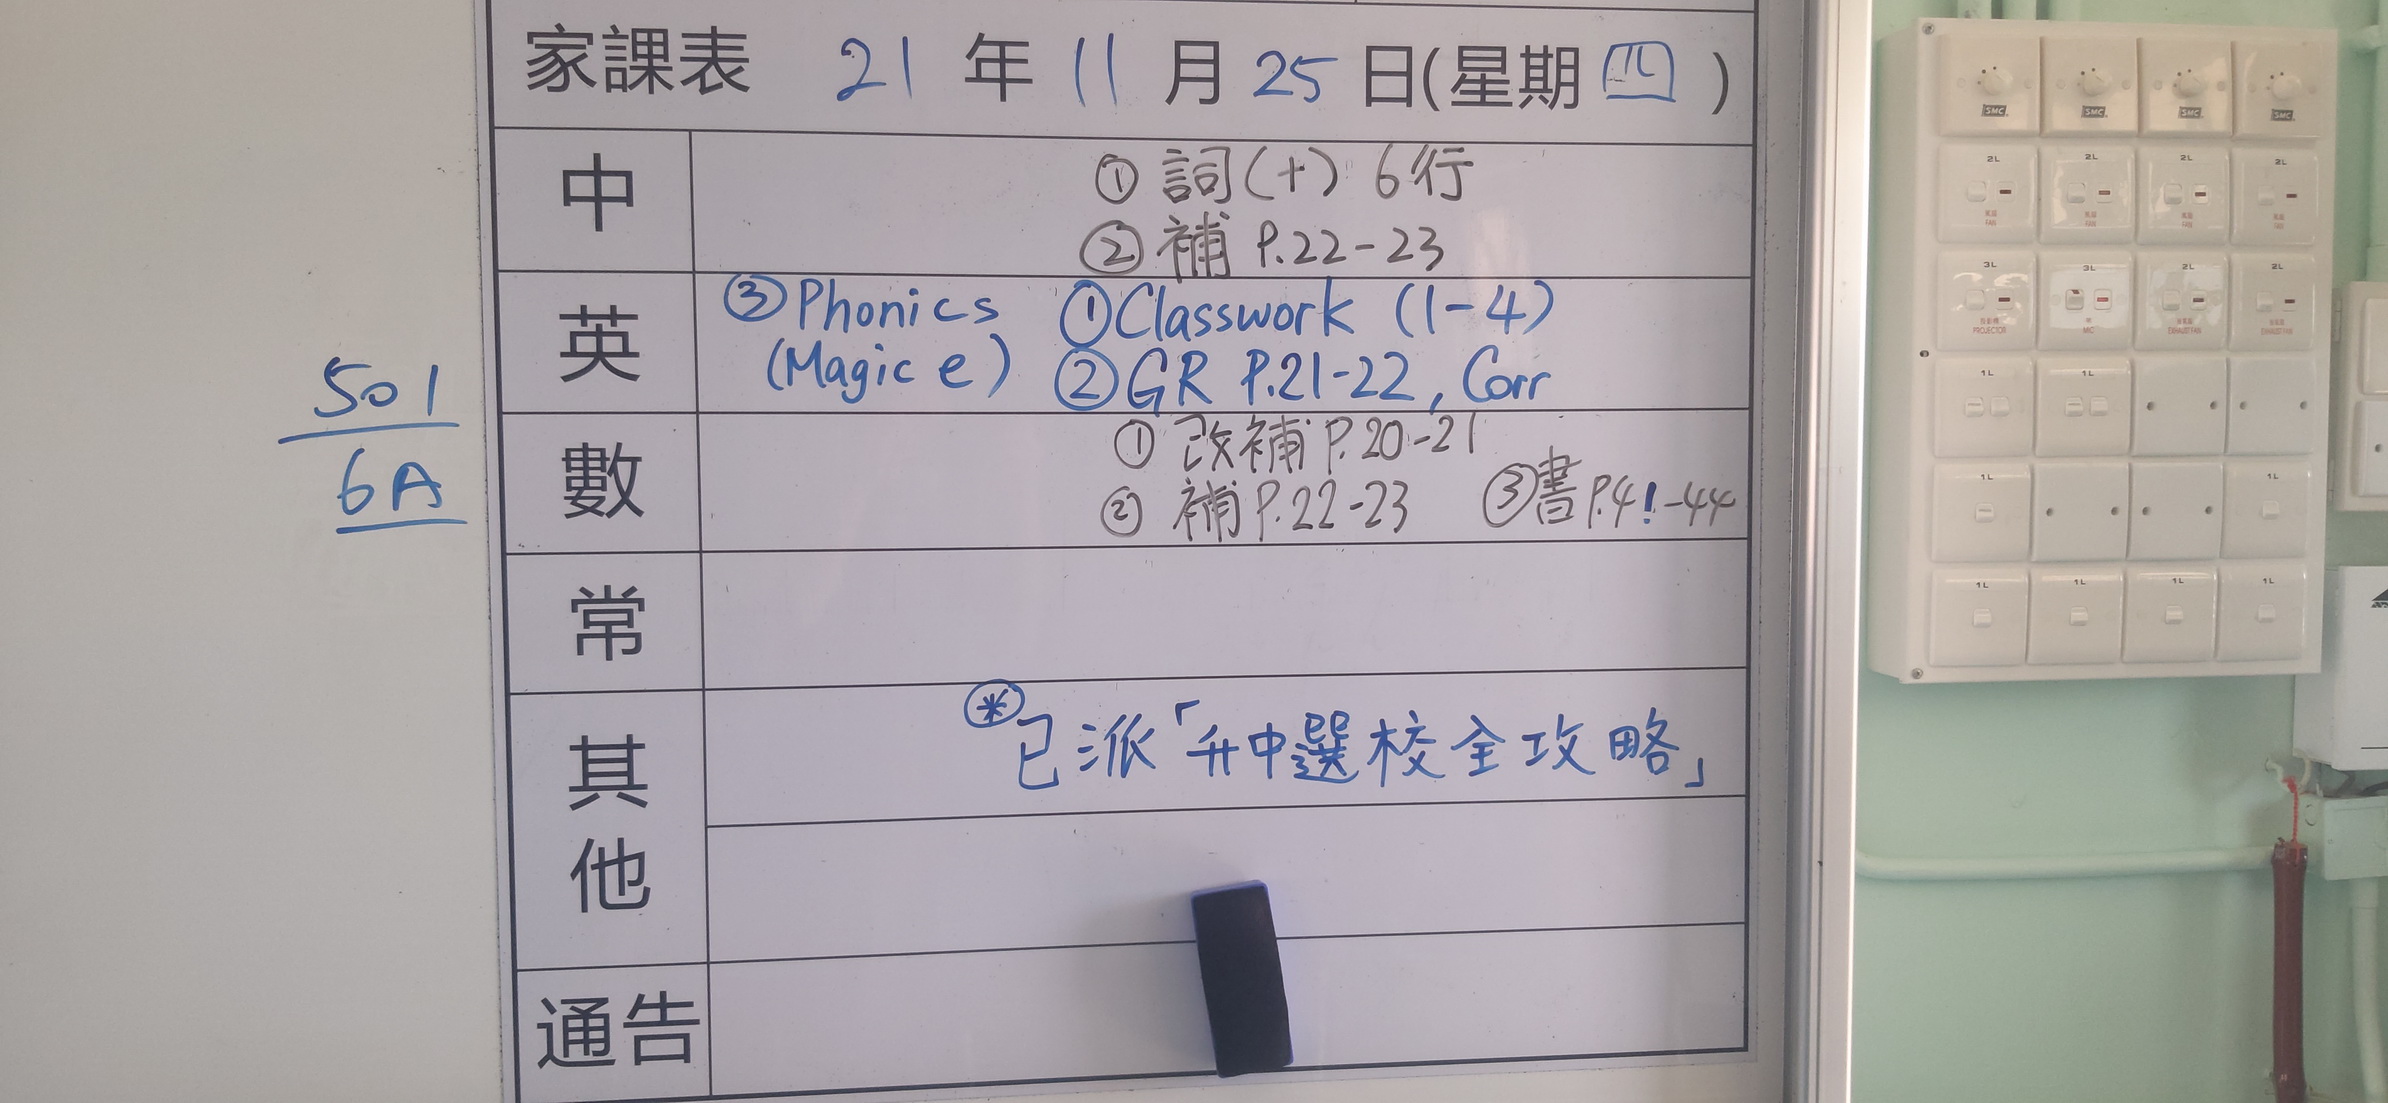 家課表 21 年 11 月 25 日(星期四)
中
① 詞(十) 6行
② 補 P.22-23
英
③ Phonics (Magic e)
① Classwork (1-4)
② GR P.21-22, Corr
數
① 改補 P.20-21
② 補 P.22-23 ③ 書 P.41-44
常
其他
* 已派「升中選校全攻略」
通告
501
6A
SMC SMC SMC SMC
2L 2L 2L 2L
風扇 風扇 風扇 風扇
FAN FAN FAN FAN
3L 3L 2L 2L
PROJECTOR MIC EXHAUST FAN EXHAUST FAN
1L 1L
1L 1L
1L 1L 1L 1L